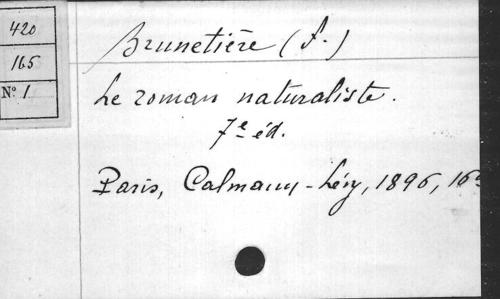 420
165
N° 1
Brunetière (F.)
Le roman naturaliste.
7e éd.
Paris, Calmann-Lévy, 1896, 16°